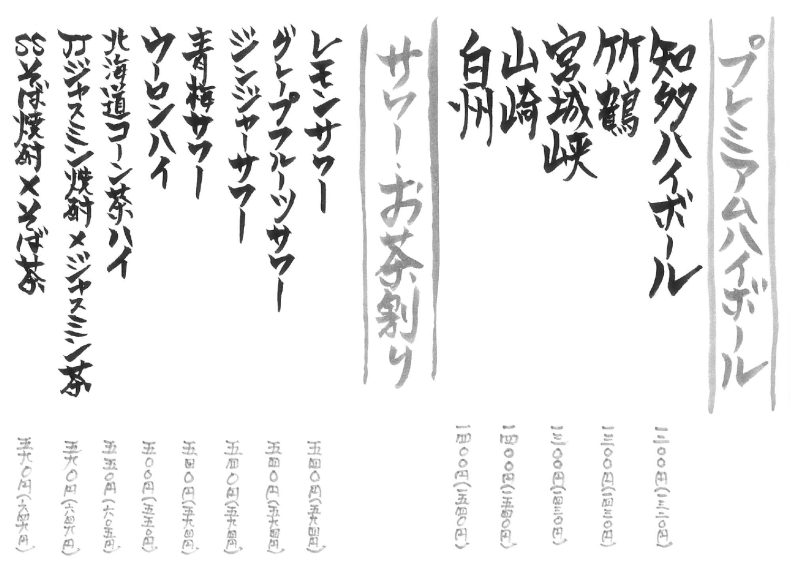 プレミアムハイボール
知多ハイボール 一二〇〇円(一三二〇円)
竹鶴 一三〇〇円(一四三〇円)
宮城峡 一三〇〇円(一四三〇円)
山崎 一四〇〇円(一五四〇円)
白州 一四〇〇円(一五四〇円)
サワー・お茶割り
レモンサワー 五四〇円(五九四円)
グレープフルーツサワー 五四〇円(五九四円)
ジンジャーサワー 五四〇円(五九四円)
青梅サワー 五四〇円(五九四円)
ウーロンハイ 五〇〇円(五五〇円)
北海道コーン茶ハイ 五五〇円(六〇五円)
JJジャスミン焼酎×ジャスミン茶 五九〇円(六四九円)
SSそば焼酎×そば茶 五九〇円(六四九円)